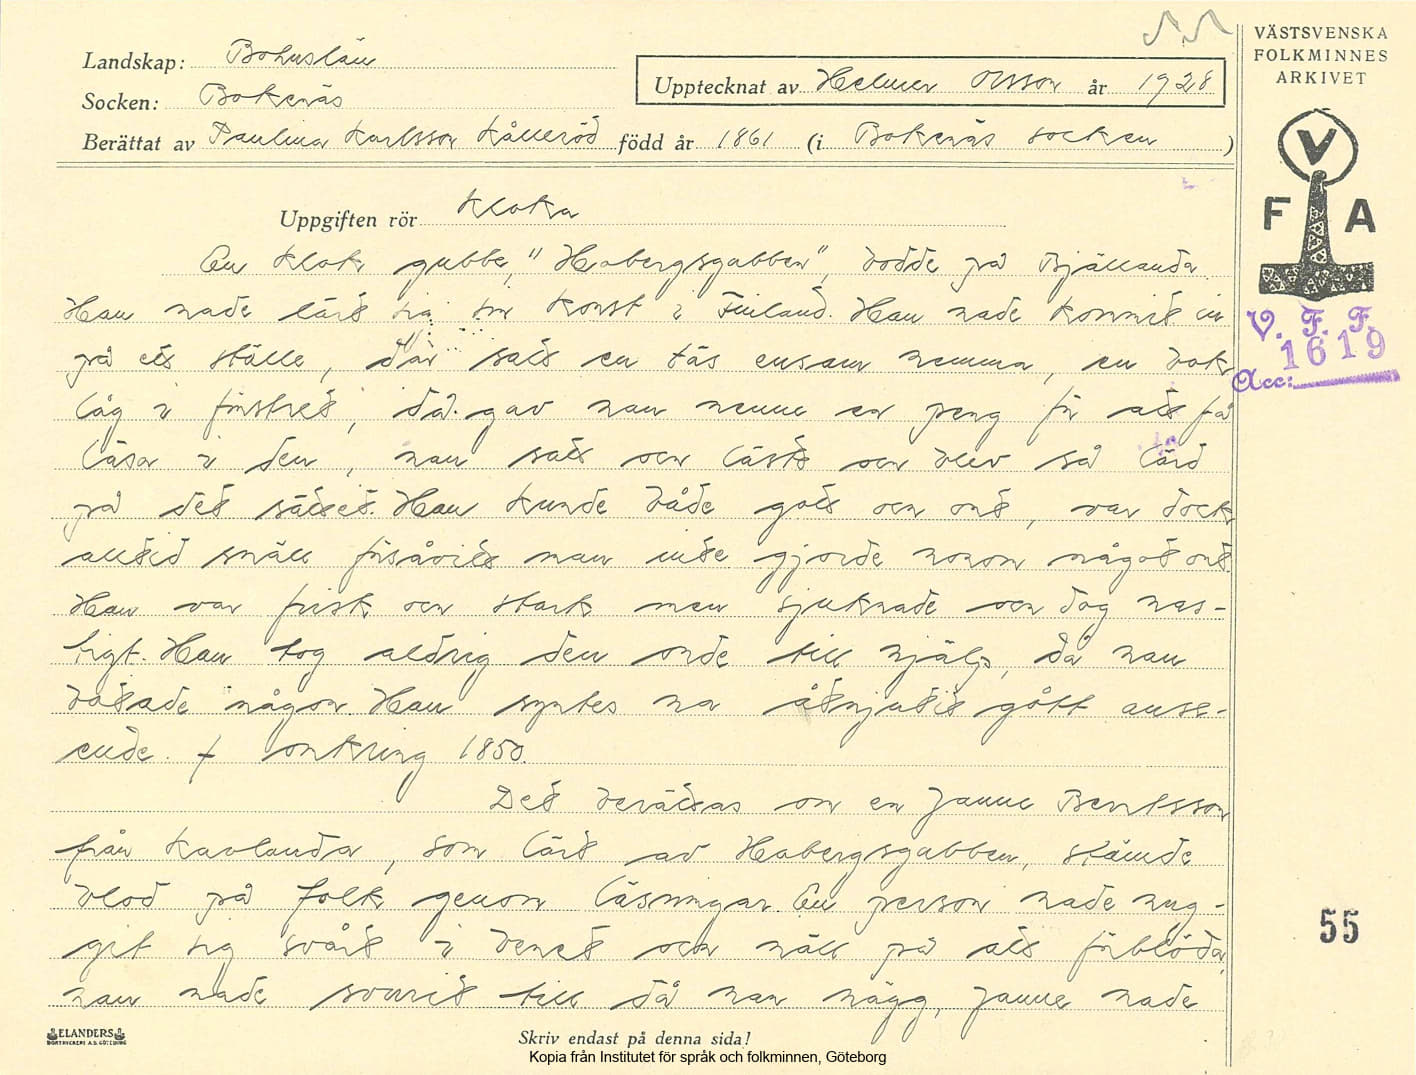 Landskap: Bohuslän
Socken: Bokenäs
Upptecknat av Helmer Olsson år 1928
Berättat av Paulina Karlsson Kålleröd född år 1861 (i Bokenäs socken )
VÄSTSVENSKA
FOLKMINNES
ARKIVET
V
F A
V. F. F.
1619
Acc:
Uppgiften rör Kloka
En klok gubbe, "Habergsgubben", bodde på Bjällanda.
Han hade lärt sig sin konst i Finland. Han hade kommit in
på ett ställe, där satt en tös ensam hemma, en bok
låg i fönstret, då gav han henne en peng för att få
läsa i den, han satt och läste och blev så lärd
på det sättet. Han kunde både gott och ont, var dock
alltid snäll försåvitt man inte gjorde honom något ont.
Han var frisk och stark men sjuknade och dog has-
tigt. Han tog aldrig den onde till hjälp, då han
botade någon. Han syntes ha åtnjutit gott anse-
ende. † omkring 1850.
Det berättas om en Janne Berntsson
från Kavlanda, som lärt av Habergsgubben, stämde
blod på folk genom läsningar. En person hade hug-
git sig svårt i benet och höll på att förblöda,
han hade svurit till då han högg, Janne hade
55
ELANDERS
BOKTRYCKERI A.B. GÖTEBORG
Skriv endast på denna sida!
Kopia från Institutet för språk och folkminnen, Göteborg